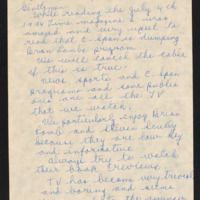 Gentlemen
While reading the July 4th
1994 Time magazine I was
amazed and very upset to
read that C-span is dumping
Brian Lambs program
We will cancel the cable
if this is true.
News sports and C-span
programs and some public
ones are all the TV
that we watch.
We particularly enjoy Brian
Lamb and Steven Scully
because they are low key
and informative
always try to watch
their book reviews.
TV has become very trivial
and boring and seems
the younger